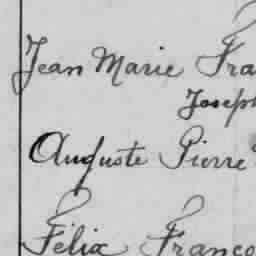 Jean Marie Fra
Joseph
Auguste Pierre
Félix Franco